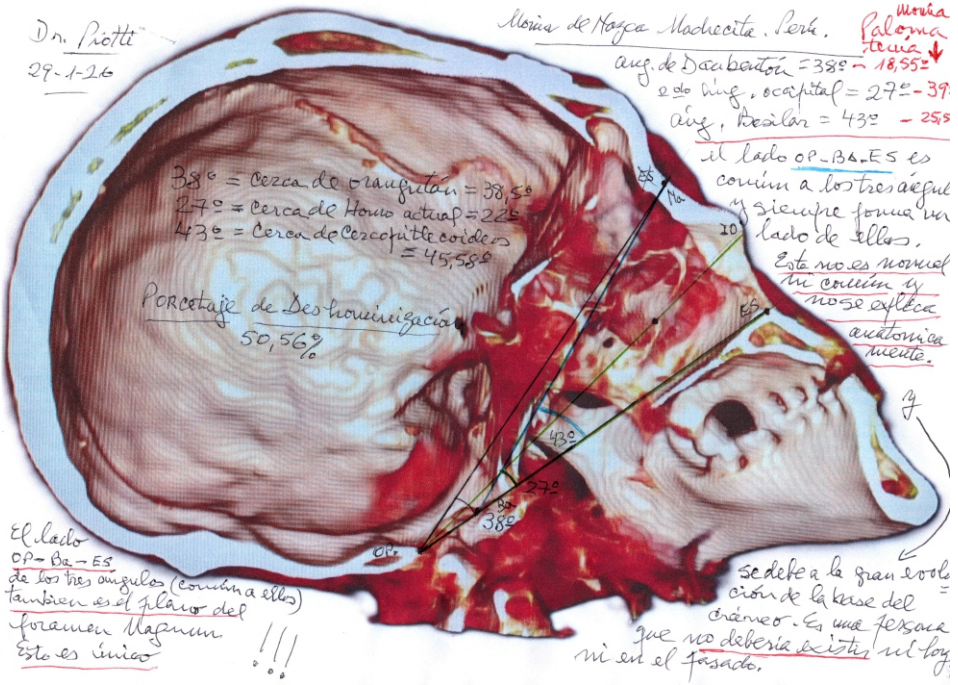 Dr. Piotti
29-1-26
Momia de Nazca Madrecita. Perú.
Momia
Paloma
tenia
áng. de Daubentón = 38º - 18,55º
2do áng. occipital = 27º - 39
áng. Basilar = 43º - 25,5
el lado OP-BA-ES es
común a los tres ángul
y siempre forma un
lado de ellos.
Esto no es normal
ni común y
no se explica
anatomica
mente.
38º = cerca de orangután = 38,5º
27º = cerca de Homo actual = 22º
43º = cerca de Cercopitecoideos
= 45,58º
Porcetaje de Deshominización
50,56%
ES
Na
IO
ES
43º
27º
Ba
38º
OP.
y
El lado
OP-Ba-ES
de los tres ángulos (común a ellos)
también es el plano del
foramen Magnum
Esto es único
!!!
se debe a la gran evolu
ción de la base del
cráneo. Es una persona
que no debería existir ni hoy
ni en el pasado.